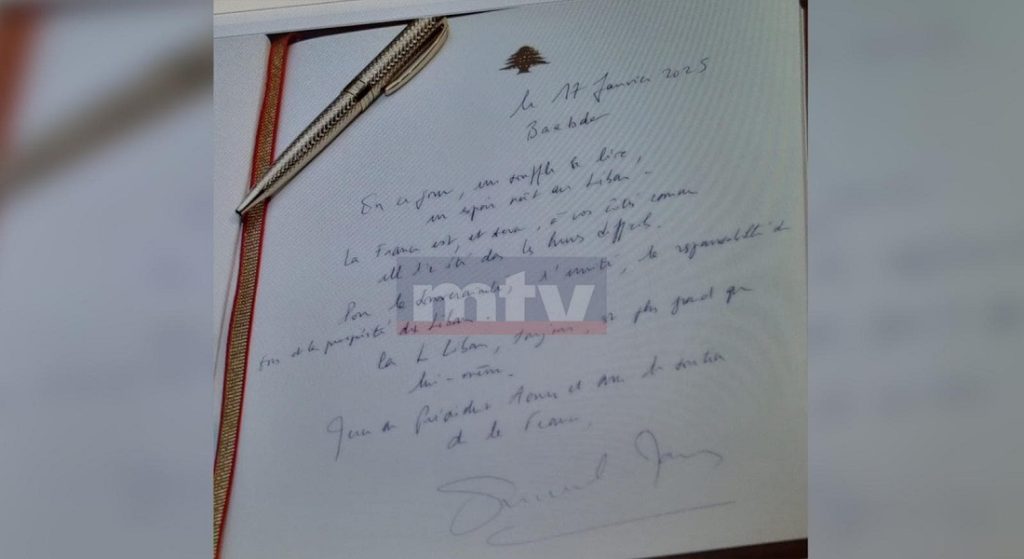 le 17 Janvier 2025
Baabda
En ce jour, un souffle se lève,
un espoir naît au Liban.
La France est, et sera, à vos côtés comme
elle l'a été dans les heures difficiles.
Pour la souveraineté, l'unité, la responsabilité de
tous et la prospérité du Liban.
Car le Liban, toujours, est plus grand que
lui-même.
Président Aoun et avec le soutien
de la France,
mtv